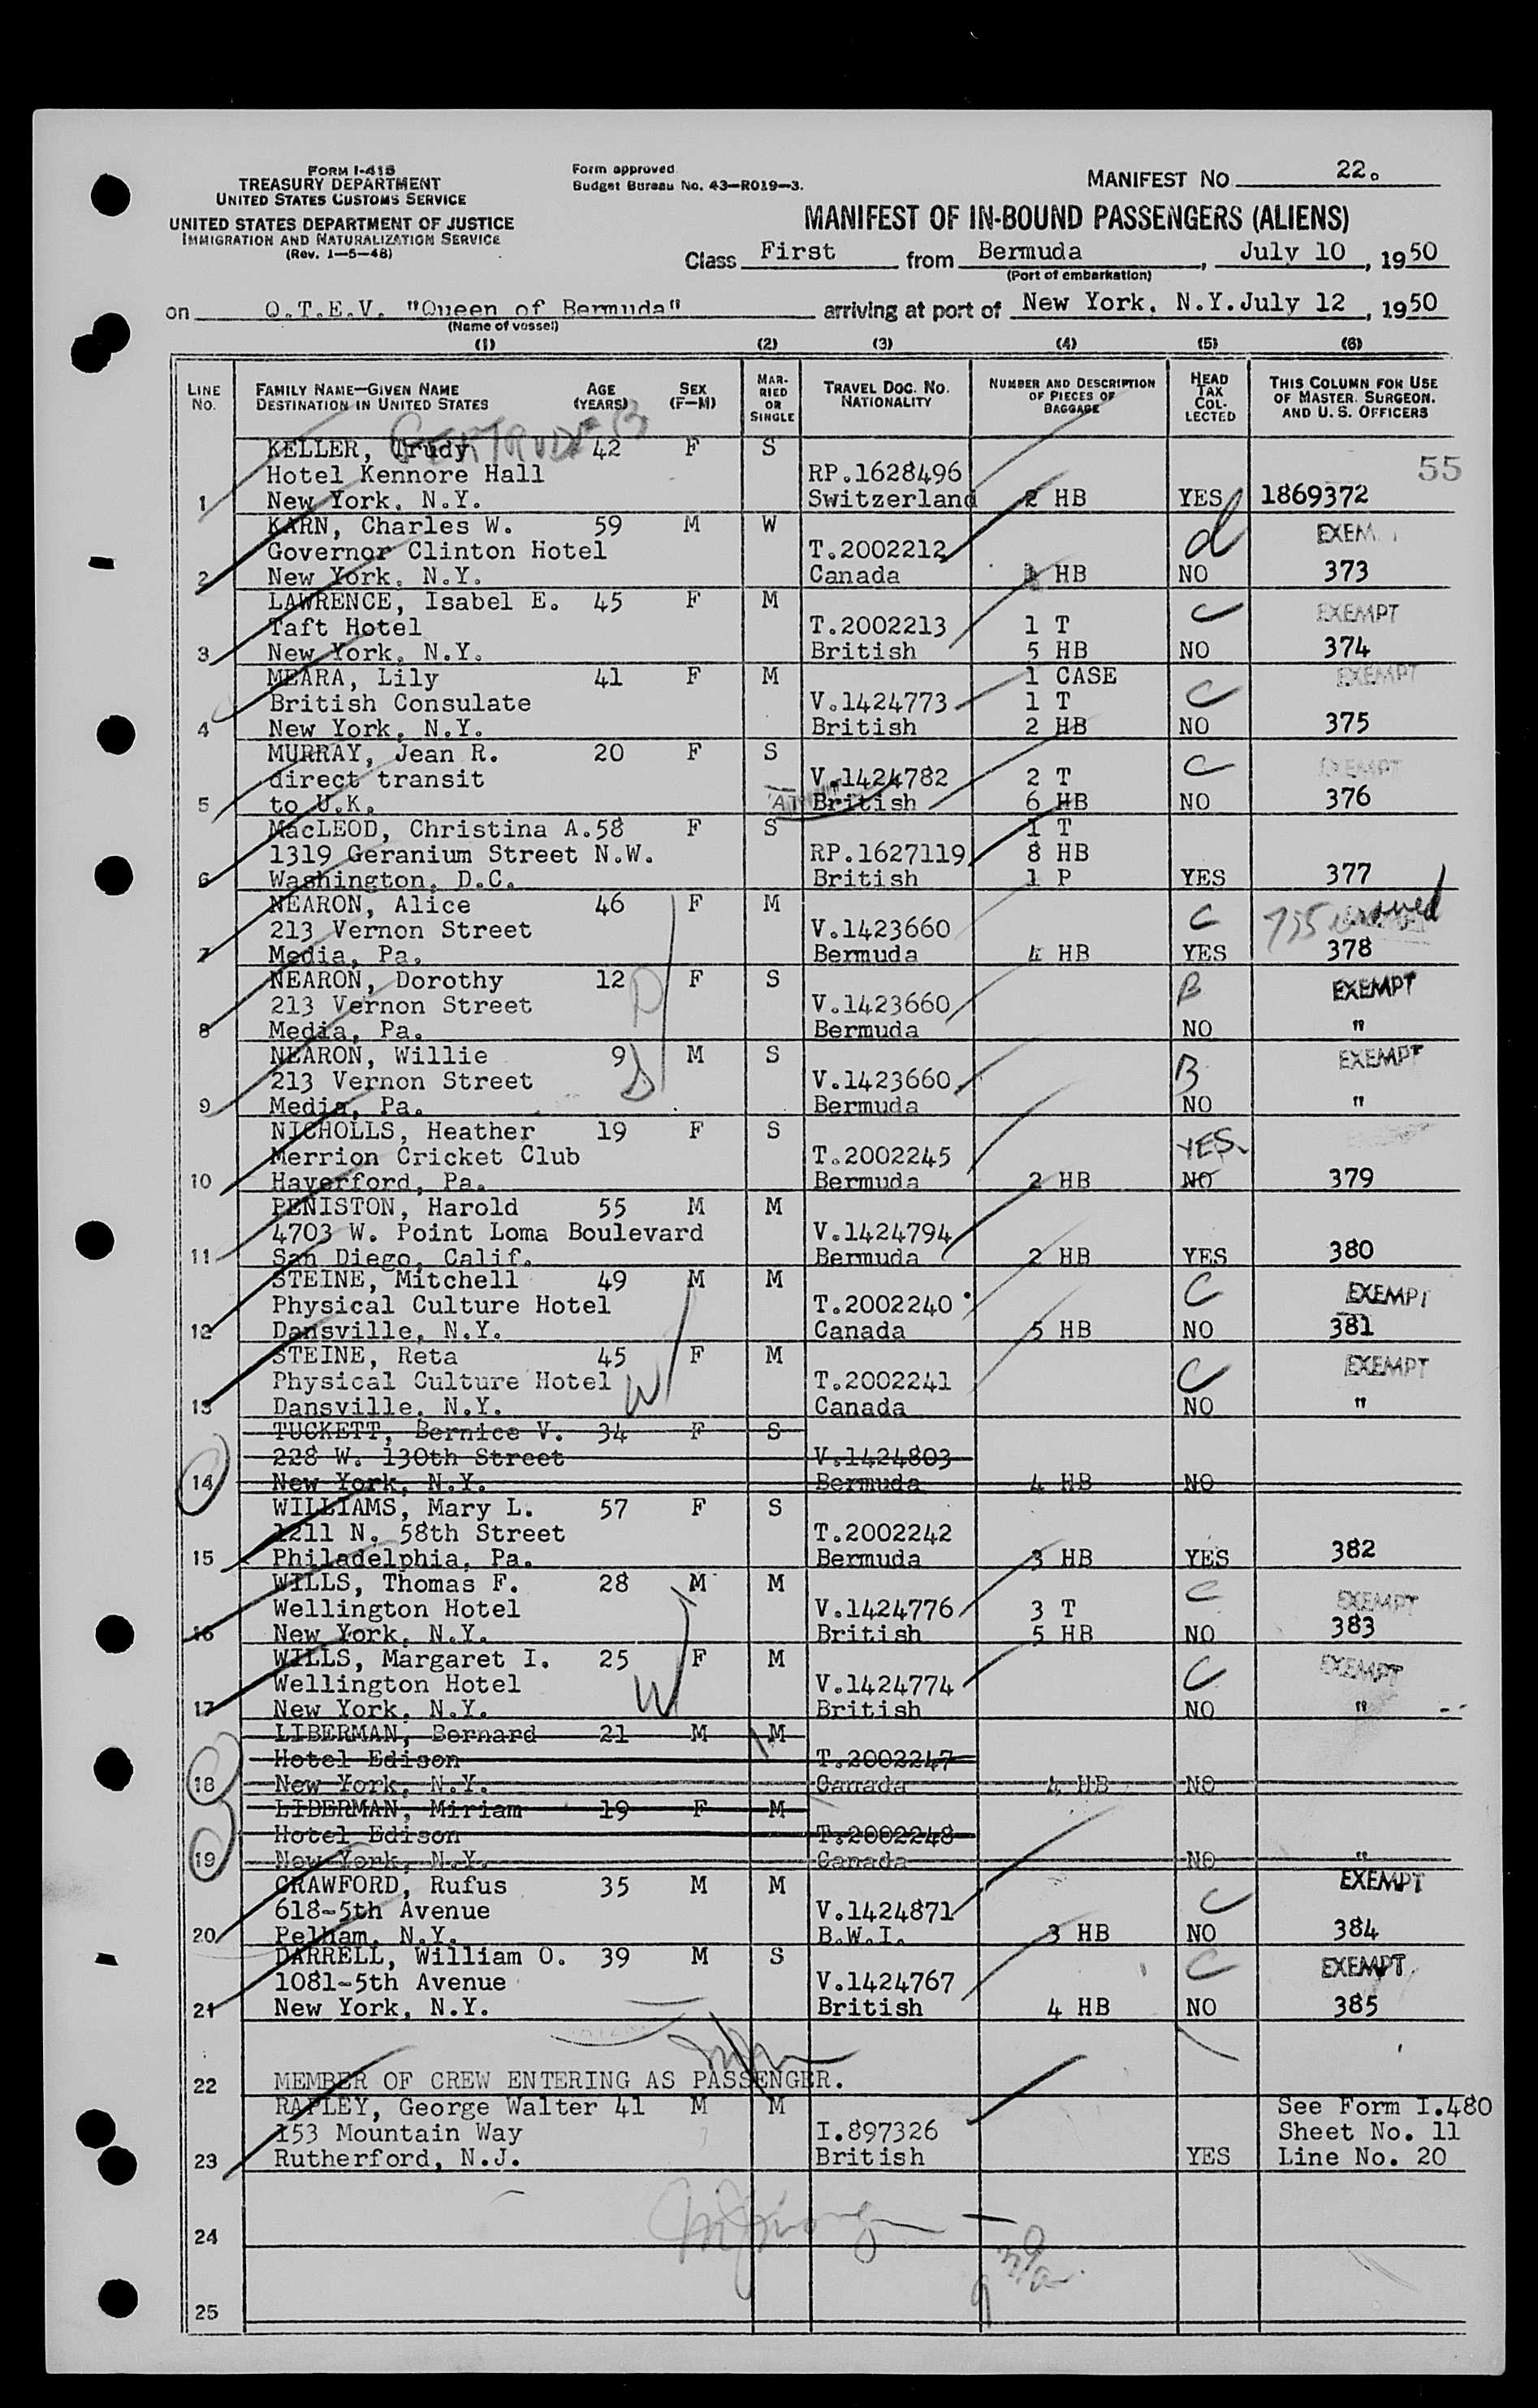 FORM I-415
TREASURY DEPARTMENT
UNITED STATES CUSTOMS SERVICE
UNITED STATES DEPARTMENT OF JUSTICE
IMMIGRATION AND NATURALIZATION SERVICE
(Rev. 1-5-48)
Form approved
Budget Bureau No. 43-R019-3.
MANIFEST No. 22.
MANIFEST OF IN-BOUND PASSENGERS (ALIENS)
Class First from Bermuda, July 10, 1950
(Port of embarkation)
on Q.T.E.V. "Queen of Bermuda" arriving at port of New York, N.Y. July 12, 1950
(Name of vessel)
(1) (2) (3) (4) (5) (6)
LINE No. FAMILY NAME—GIVEN NAME DESTINATION IN UNITED STATES AGE (YEARS) SEX (F-M) MARRIED OR SINGLE TRAVEL DOC. NO. NATIONALITY NUMBER AND DESCRIPTION OF PIECES OF BAGGAGE HEAD TAX COLLECTED THIS COLUMN FOR USE OF MASTER, SURGEON, AND U. S. OFFICERS
GERTRUDE B
KELLER, Trudy 42 F S
Hotel Kennore Hall RP.1628496 55
1 New York, N.Y. Switzerland 2 HB YES 1869372
KARN, Charles W. 59 M W
Governor Clinton Hotel T.2002212 d EXEM
2 New York, N.Y. Canada HB NO 373
LAWRENCE, Isabel E. 45 F M C EXEMPT
Taft Hotel T.2002213 1 T
3 New York, N.Y. British 5 HB NO 374
MEARA, Lily 41 F M 1 CASE EXEMPT
British Consulate V.1424773 1 T C
4 New York, N.Y. British 2 HB NO 375
MURRAY, Jean R. 20 F S C EXEMPT
direct transit V.1424782 2 T
5 to U.K. British 6 HB NO 376
MacLEOD, Christina A. 58 F S 1 T
1319 Geranium Street N.W. RP.1627119 8 HB
6 Washington, D.C. British 1 P YES 377
NEARON, Alice 46 F M C
213 Vernon Street V.1423660
7 Media, Pa. Bermuda 4 HB YES 378
NEARON, Dorothy 12 F S B EXEMPT
213 Vernon Street V.1423660
8 Media, Pa. Bermuda NO "
NEARON, Willie 9 M S B EXEMPT
213 Vernon Street V.1423660
9 Media, Pa. Bermuda NO "
NICHOLLS, Heather 19 F S YES
Merrion Cricket Club T.2002245
10 Haverford, Pa. Bermuda 2 HB NO 379
PENISTON, Harold 55 M M
4703 W. Point Loma Boulevard V.1424794
11 San Diego, Calif. Bermuda 2 HB YES 380
STEINE, Mitchell 49 M M C EXEMPT
Physical Culture Hotel T.2002240
12 Dansville, N.Y. Canada 5 HB NO 381
STEINE, Reta 45 F M C EXEMPT
Physical Culture Hotel W T.2002241
13 Dansville, N.Y. Canada NO "
TUCKETT, Bernice V. 34 F S
228 W. 130th Street V.1424803
14 New York, N.Y. Bermuda 4 HB NO
WILLIAMS, Mary L. 57 F S
1211 N. 58th Street T.2002242
15 Philadelphia, Pa. Bermuda 3 HB YES 382
WILLS, Thomas F. 28 M M C EXEMPT
Wellington Hotel V.1424776 3 T
16 New York, N.Y. British 5 HB NO 383
WILLS, Margaret I. 25 F M C EXEMPT
Wellington Hotel W V.1424774
17 New York, N.Y. British NO "
LIBERMAN, Bernard 21 M M
Hotel Edison T.2002247
18 New York, N.Y. Canada 4 HB NO
LIBERMAN, Miriam 19 F M
Hotel Edison T.2002248
19 New York, N.Y. Canada NO "
CRAWFORD, Rufus 35 M M C EXEMPT
618-5th Avenue V.1424871
20 Pelham, N.Y. B.W.I. 3 HB NO 384
DARRELL, William O. 39 M S C EXEMPT
1081-5th Avenue V.1424767
21 New York, N.Y. British 4 HB NO 385
22 MEMBER OF CREW ENTERING AS PASSENGER.
RAPLEY, George Walter 41 M M See Form I.480
153 Mountain Way I.897326 Sheet No. 11
23 Rutherford, N.J. British YES Line No. 20
24
25